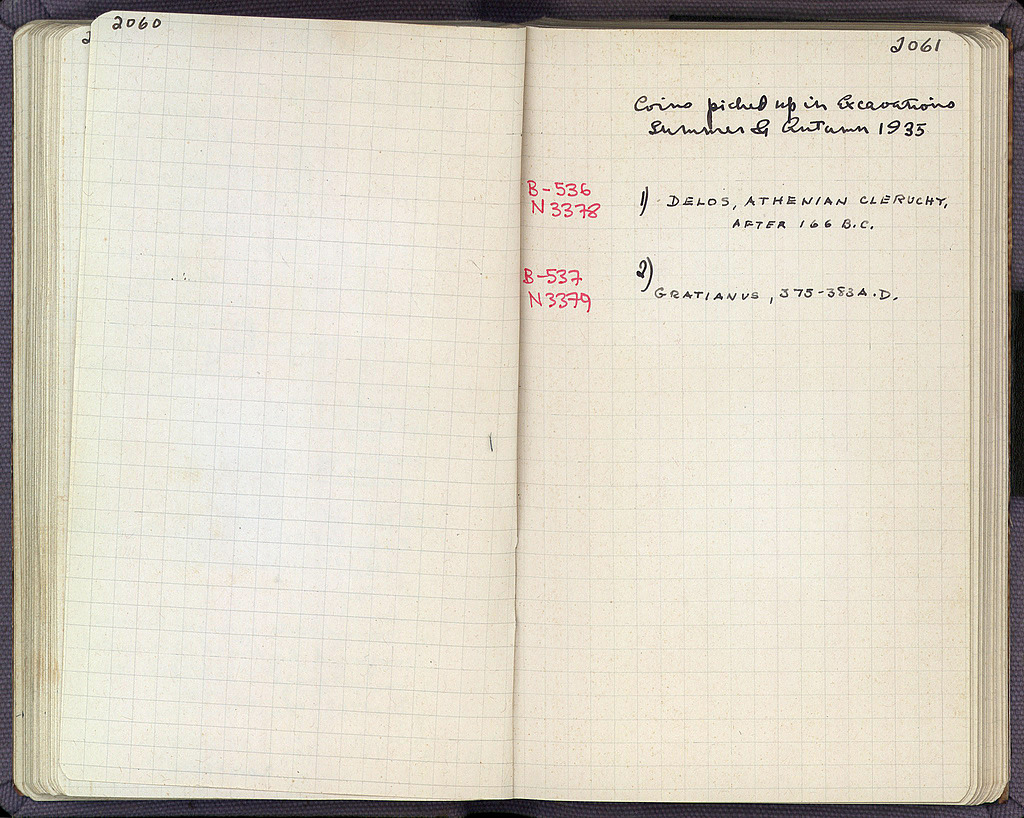 2060
2061
Coins picked up in Excavations
Summer & Autumn 1935
B-536
N3378
1) DELOS, ATHENIAN CLERUCHY,
AFTER 166 B.C.
B-537
N3379
2)
GRATIANUS, 375-383 A.D.